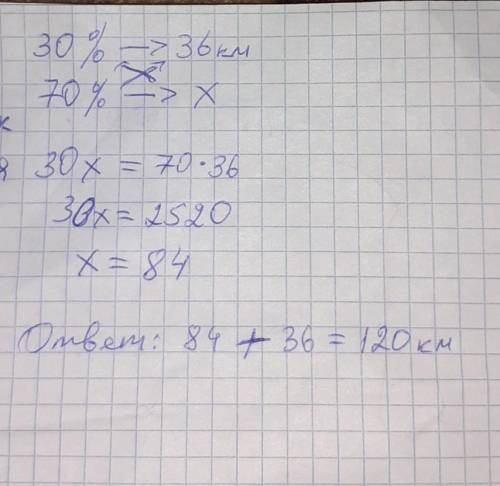 30% —> 36км
70% —> x
30x = 70·36
30x = 2520
x = 84
Ответ: 84 + 36 = 120км